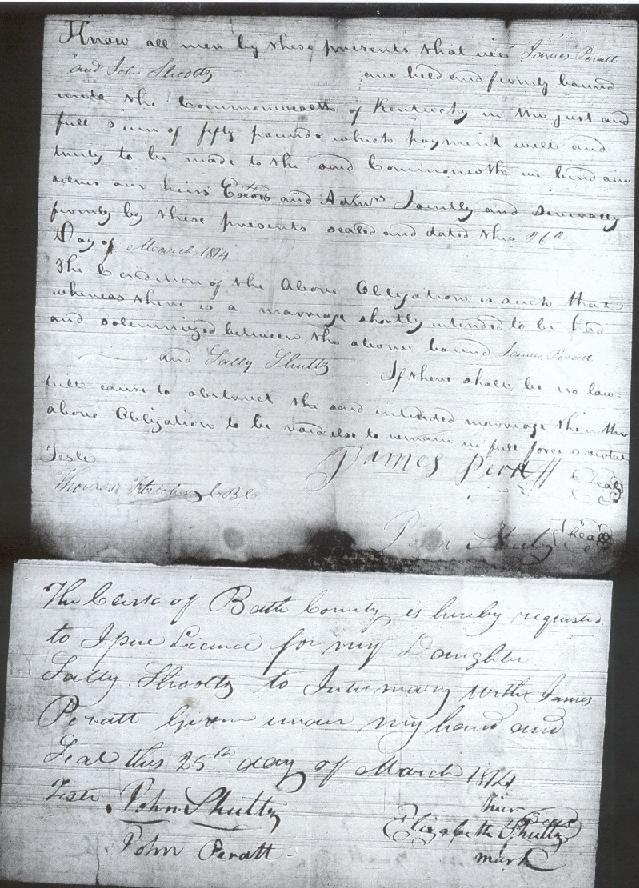 Know all men by these presents that we James Peratt
and John Shootty are held and firmly bound
unto the Commonwealth of Kentucky in the just and
full sum of fifty pounds which payment well and
truly to be made to the said Commonwealth we bind our
selves our heirs Exctors and Admrs Jointly and Severally
firmly by these presents sealed and dated this 26th
Day of March 1814
The Condition of the Above Obligation is such that
whereas there is a marriage shortly intended to be had
and solemnized between the above bound James Peratt
and Sally Shutty If there shall be no law
full cause to obstruct the said intended marriage then the
above Obligation to be void else to remain in full force & virtue
Teste James Peratt Seal
Thomas
John Shutty Seal
The Clerk of Bath County is hereby requested
to Issue Licence for my Daughter
Sally Shootty to Intermarry with James
Peratt Given under my hand and
Seal this 25th day of March 1814
Teste John Shutty her
Elizabeth Shutty
John Peratt mark